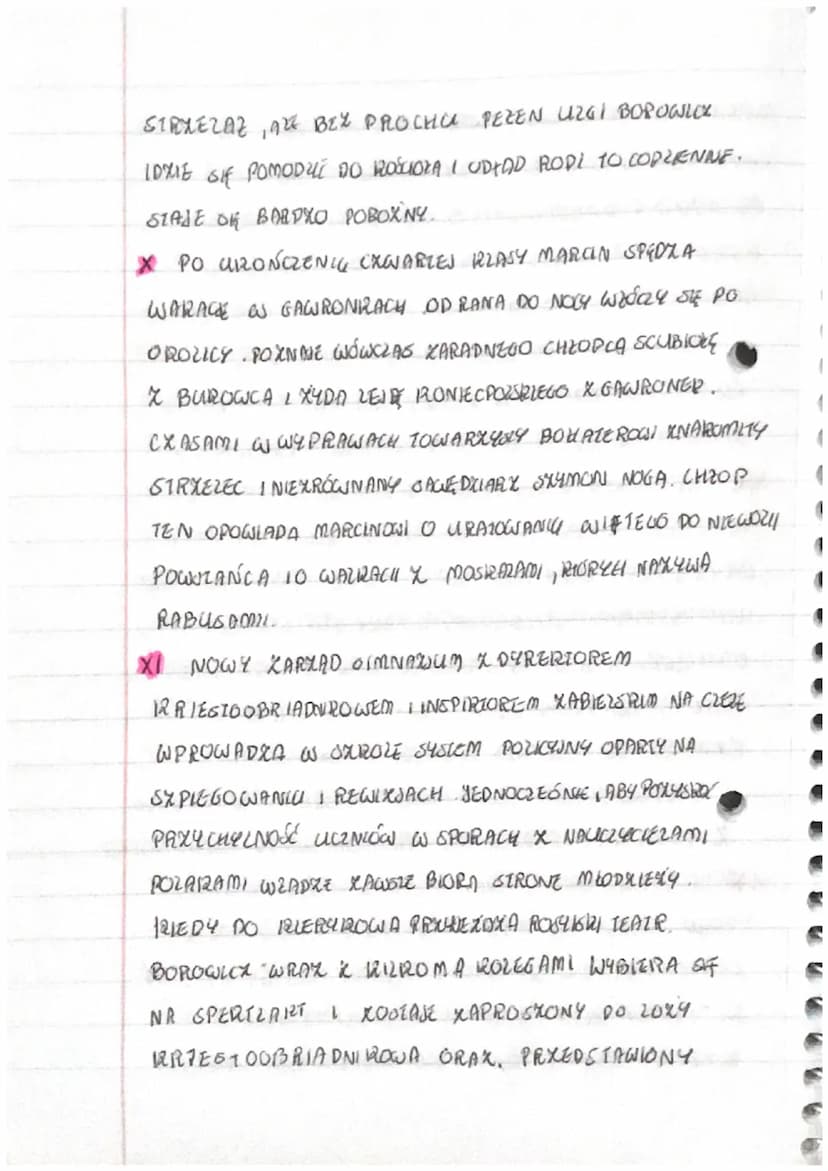 STRZELAŁ, ALE BEZ PROCHU. PEŁEN ULGI BOROWICZ
IDZIE SIĘ POMODLIĆ DO KOŚCIOŁA I ODTĄD ROBI TO CODZIENNIE.
STAJE SIĘ BARDZO POBOŻNY.
X PO UKOŃCZENIU CZWARTEJ KLASY MARCIN SPĘDZA
WAKACJE W GAWRONKACH. OD RANA DO NOCY WŁÓCZY SIĘ PO
OKOLICY. POZNAJE WÓWCZAS ZARADNEGO CHŁOPCA SCUBIOŁĘ
Z BUROWCA I ŻYDA LEJBĘ KONIECPOLSKIEGO Z GAWRONEK.
CZASAMI W WYPRAWACH TOWARZYSZY BOHATEROWI ZNAKOMITY
STRZELEC I NIEZRÓWNANY GAWĘDZIARZ SZYMON NOGA. CHŁOP
TEN OPOWIADA MARCINOWI O URATOWANIU WZIĘTEGO DO NIEWOLI
POWSTAŃCA I O WALKACH Z MOSKALAMI, KTÓRYCH NAZYWA
RABUSIAMI.
XI NOWY ZARZĄD GIMNAZJUM Z DYREKTOREM
KRIESTOOBRIADNIKOWEM I INSPEKTOREM ZABIELSKIM NA CZELE
WPROWADZA W SZKOLE SYSTEM POLICYJNY OPARTY NA
SZPIEGOWANIU I REWIZJACH. JEDNOCZEŚNIE, ABY POZYSKAĆ
PRZYCHYLNOŚĆ UCZNIÓW W SPORACH Z NAUCZYCIELAMI
POLAKAMI WŁADZE ZAWSZE BIORĄ STRONĘ MŁODZIEŻY.
KIEDY DO KLERYKOWA PRZYJEŻDŻA ROSYJSKI TEATR,
BOROWICZ WRAZ Z KILKOMA KOLEGAMI WYBIERA SIĘ
NA SPEKTAKL I ZOSTAJE ZAPROSZONY DO LOŻY
KRIESTOOBRIADNIKOWA ORAZ. PRZEDSTAWIONY